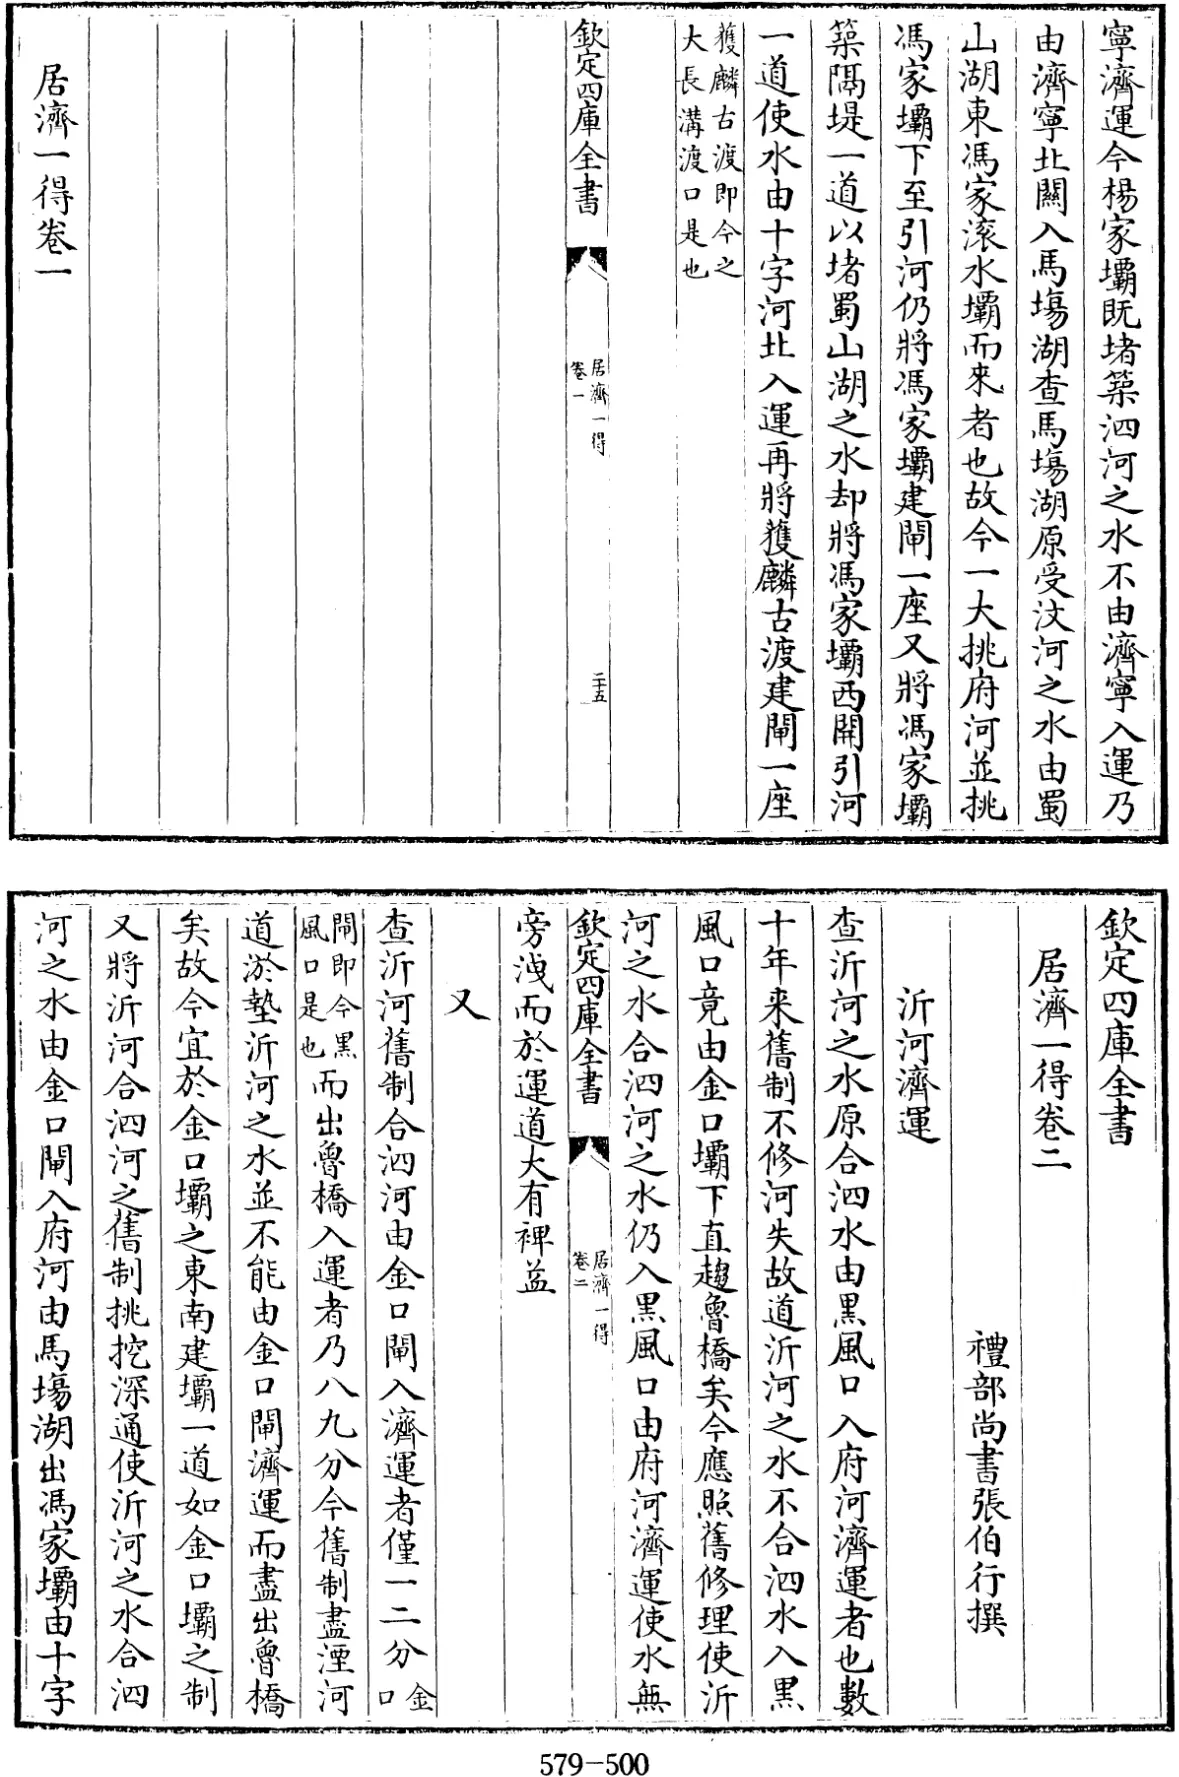 寧濟運今楊家壩既堵築泗河之水不由濟寧入運乃
由濟寧北關入馬場湖查馬場湖原受汶河之水由蜀
山湖東馮家滾水壩而來者也故今一大挑府河並挑
馮家壩下至引河仍將馮家壩建閘一座又將馮家壩
築隔堤一道以堵蜀山湖之水却將馮家壩西開引河
一道使水由十字河北入運再將獲麟古渡建閘一座
獲麟古渡即今之
大長溝渡口是也
欽定四庫全書
居濟一得
卷一
二十五
居濟一得卷一
欽定四庫全書
居濟一得卷二
禮部尚書張伯行撰
沂河濟運
查沂河之水原合泗水由黑風口入府河濟運者也數
十年来舊制不修河失故道沂河之水不合泗水入黑
風口竟由金口壩下直趨魯橋矣今應照舊修理使沂
河之水合泗河之水仍入黑風口由府河濟運使水無
欽定四庫全書
居濟一得
卷二
旁洩而於運道大有裨益
又
查沂河舊制合泗河由金口閘入濟運者僅一二分金口
閘即今黑
風口是也而出魯橋入運者乃八九分今舊制盡湮河
道淤墊沂河之水並不能由金口閘濟運而盡出魯橋
矣故今宜於金口壩之東南建壩一道如金口壩之制
又將沂河合泗河之舊制挑挖深通使沂河之水合泗
河之水由金口閘入府河由馬場湖出馮家壩由十字
579-500